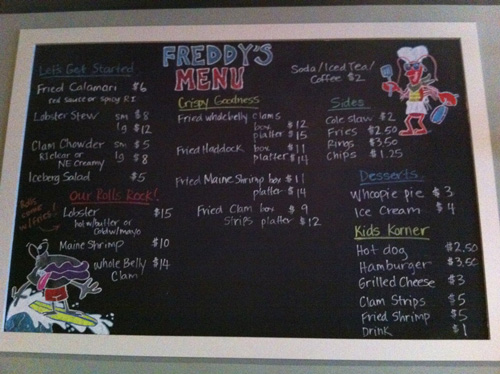 FREDDY'S
MENU
Let's Get Started
Fried Calamari $6
red sauce or spicy RI
Lobster Stew sm $8
lg $12
Clam Chowder sm $5
RI clear or lg $8
NE Creamy
Iceberg Salad $5
Our Rolls Rock!
Rolls come w/ fries!
Lobster $15
hot w/butter or
cold w/mayo
Maine Shrimp $10
Whole Belly $14
Clam
Crispy Goodness
Fried wholebelly clams
box $12
platter $15
Fried Haddock box $11
platter $14
Fried Maine Shrimp box $11
platter $14
Fried Clam box $9
Strips platter $12
Soda/Iced Tea/
Coffee $2
Sides
Cole slaw $2
Fries $2.50
Rings $3.50
Chips $1.25
Desserts
Whoopie pie $3
Ice Cream $4
Kids Korner
Hot dog $2.50
Hamburger $3.50
Grilled Cheese $3
Clam Strips $5
Fried Shrimp $5
Drink $1